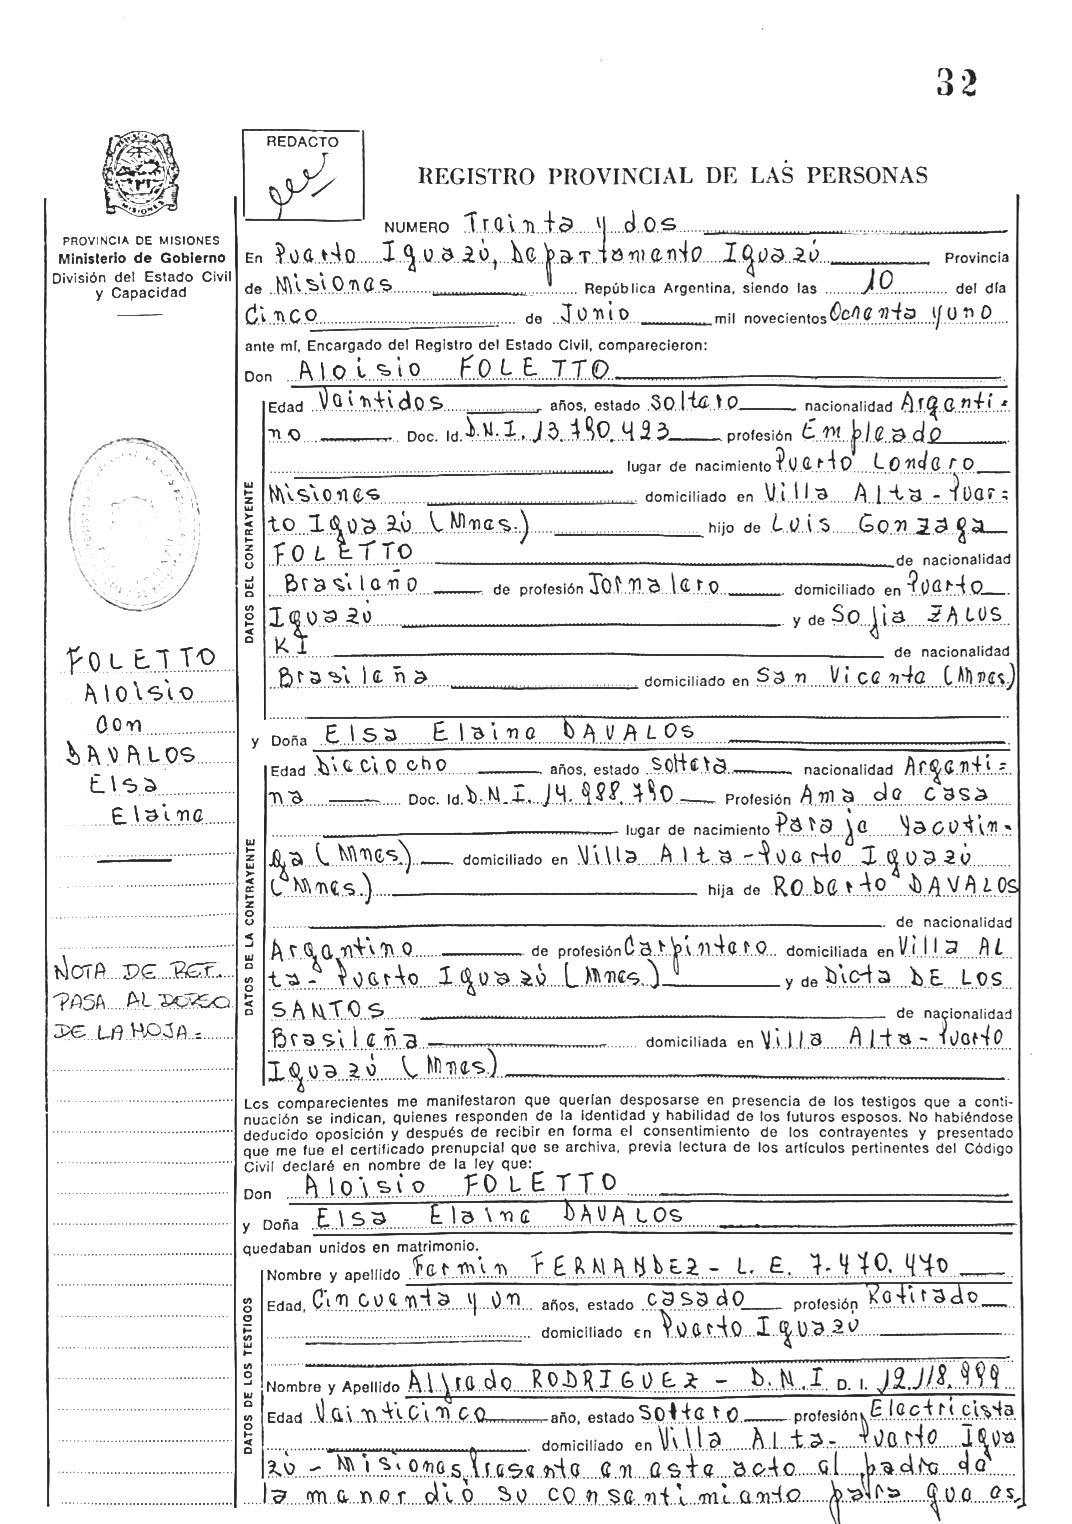 32
REDACTO
REGISTRO PROVINCIAL DE LAS PERSONAS
MISIONES
PROVINCIA DE MISIONES
Ministerio de Gobierno
División del Estado Civil
y Capacidad
NUMERO Treinta y dos
En Puerto Iguazú, Departamento Iguazú Provincia
de Misiones República Argentina, siendo las 10 del día
Cinco de Junio mil novecientos Ochenta y uno
ante mí, Encargado del Registro del Estado Civil, comparecieron:
Don Aloisio FOLETTO
DATOS DEL CONTRAYENTE
Edad Veintidos años, estado soltero nacionalidad Argenti=
no Doc. Id. D.N.I. 13.790.493 profesión Empleado
lugar de nacimiento Puerto Londero
Misiones domiciliado en Villa Alta - Puer=
to Iguazú (Mnes.) hijo de Luis Gonzaga
FOLETTO de nacionalidad
Brasileño de profesión Jornalero domiciliado en Puerto
Iguazú y de Sofia ZALUS
KI de nacionalidad
Brasileña domiciliado en San Vicente (Mnes.)
FOLETTO
Aloisio
con
DAVALOS
Elsa
Elaine
y Doña Elsa Elaine DAVALOS
DATOS DE LA CONTRAYENTE
Edad Dieciocho años, estado soltera nacionalidad Argenti=
na Doc. Id. D.N.I. 14.988.790 Profesión Ama de casa
lugar de nacimiento Paraje Yacutin-
ga (Mnes.) domiciliado en Villa Alta - Puerto Iguazú
(Mnes.) hija de Roberto DAVALOS
de nacionalidad
Argentino de profesión Carpintero domiciliada en Villa Al
ta - Puerto Iguazú (Mnes.) y de Dicta DE LOS
SANTOS de nacionalidad
Brasileña domiciliada en Villa Alta - Puerto
Iguazú (Mnes)
NOTA DE REF.
PASA AL DORSO
DE LA HOJA=
Los comparecientes me manifestaron que querían desposarse en presencia de los testigos que a conti-
nuación se indican, quienes responden de la identidad y habilidad de los futuros esposos. No habiéndose
deducido oposición y después de recibir en forma el consentimiento de los contrayentes y presentado
que me fue el certificado prenupcial que se archiva, previa lectura de los artículos pertinentes del Código
Civil declaré en nombre de la ley que:
Don Aloisio FOLETTO
y Doña Elsa Elaine DAVALOS
quedaban unidos en matrimonio.
DATOS DE LOS TESTIGOS
Nombre y apellido Fermin FERNANDEZ - L.E. 7.470.470
Edad, Cincuenta y un años, estado casado profesión Retirado
domiciliado en Puerto Iguazú
Nombre y Apellido Alfredo RODRIGUEZ - D.N.I D. I. 12.118.999
Edad Veinticinco año, estado soltero profesión Electricista
domiciliado en Villa Alta - Puerto Igua
zú - Misiones. Presente en este acto el padre de
la menor dió su consentimiento para que es.